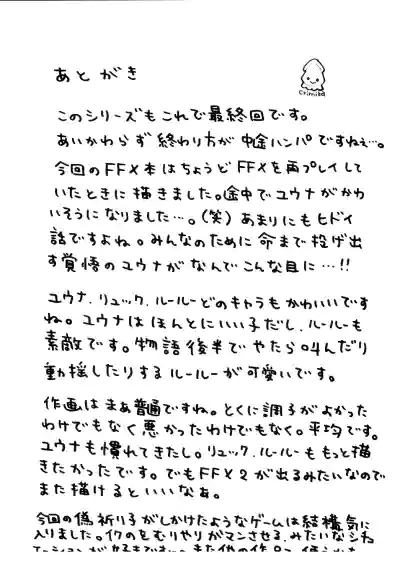 あとがき
Crimiko
このシリーズもこれで最終回です。
あいかわらず終わり方が中途ハンパですねぇ…。
今回のFFX本はちょうどFFXを再プレイして
いたときに描きました。途中でユウナがかわ
いそうになりました…。(笑)あまりにもヒドイ
話ですよね。みんなのために命まで投げ出
す覚悟のユウナがなんでこんな目に…!!
ユウナ、リュック、ルールーどのキャラもかわいいです
ね。ユウナはほんとにいい子だし、ルールーも
素敵です。物語後半でやたら叫んだり
動揺したりするルールーが可愛いです。
作画はまあ普通ですね。とくに調子がよかった
わけでもなく悪かったわけでもなく。平均です。
ユウナも慣れてきたし。リュック、ルールーももっと描
きたかったです。でもFFX2が出るみたいなので
また描けるといいなぁ。
今回の偽祈り子がしかけたようなゲームは結構気に
入りました。イクのをむりやりガマンさせる、みたいなシチュ
エーションが好きです…。また他の作品